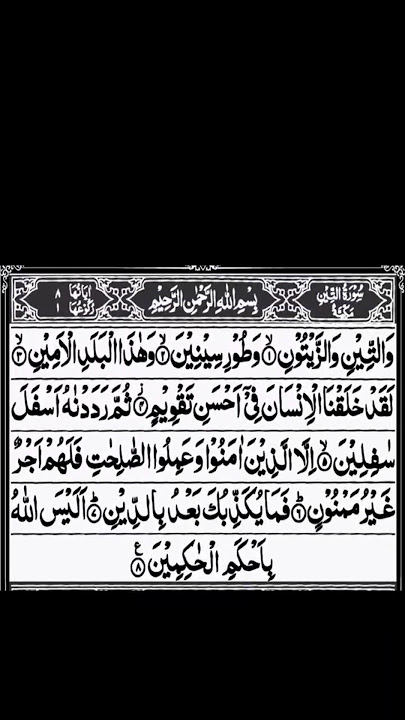 سُوْرَةُ التِّيْنِ مَكِّيَّةٌ
بِسْمِ اللهِ الرَّحْمٰنِ الرَّحِيْمِ
اٰيَاتُهَا ٨ رُكُوْعُهَا ١
وَالتِّيْنِ وَالزَّيْتُوْنِ ۝١ وَطُوْرِ سِيْنِيْنَ ۝٢ وَهٰذَا الْبَلَدِ الْاَمِيْنِ ۝٣
لَقَدْ خَلَقْنَا الْاِنْسَانَ فِيْۤ اَحْسَنِ تَقْوِيْمٍ ۝٤ ثُمَّ رَدَدْنٰهُ اَسْفَلَ
سٰفِلِيْنَ ۝٥ اِلَّا الَّذِيْنَ اٰمَنُوْا وَعَمِلُوا الصّٰلِحٰتِ فَلَهُمْ اَجْرٌ
غَيْرُ مَمْنُوْنٍ ۝٦ فَمَا يُكَذِّبُكَ بَعْدُ بِالدِّيْنِ ۝٧ اَلَيْسَ اللهُ
بِاَحْكَمِ الْحٰكِمِيْنَ ۝٨ ع